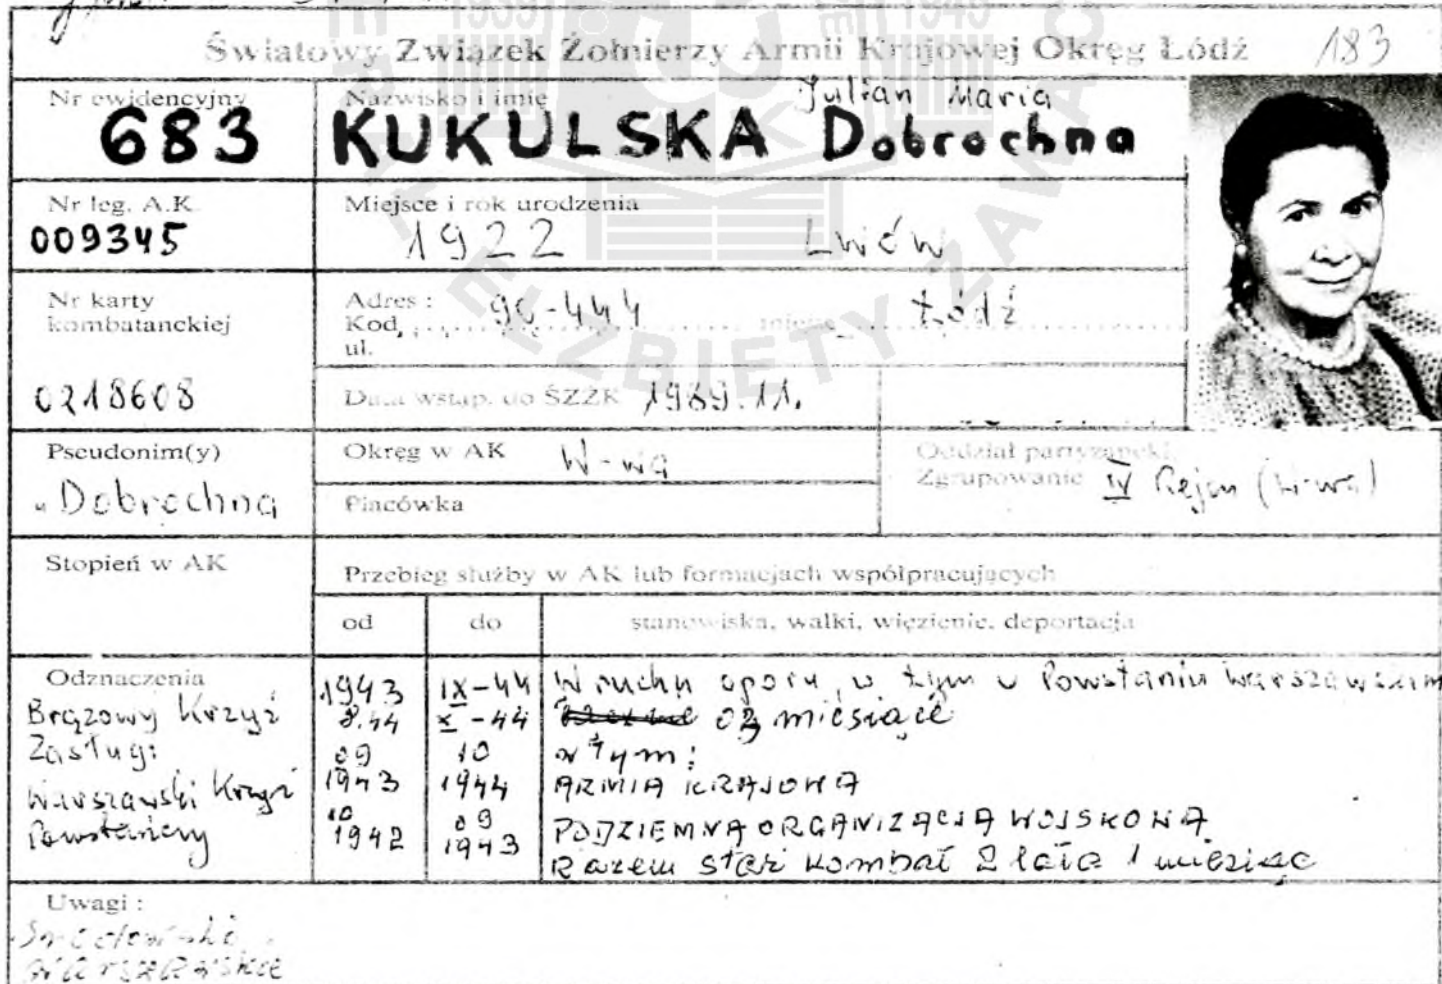 1939 1945
Światowy Związek Żołnierzy Armii Krajowej Okręg Łódź 183
Nr ewidencyjny
683
Nazwisko i imię
Julian Maria
KUKULSKA Dobrochna
Nr leg. A.K.
009345
Miejsce i rok urodzenia
1922 Lwów
Nr karty
kombatanckiej
0218608
Adres :
Kod, 90-444 Łódź
ul.
Data wstąp. do ŚZŻK 1989.11.
Pseudonim(y)
"Dobrochna
Okręg w AK W-wa
Placówka
Oddział partyzancki,
Zgrupowanie IV Rejon (W-wa)
Stopień w AK
Przebieg służby w AK lub formacjach współpracujących
od do stanowiska, walki, więzienie, deportacja
Odznaczenia
Brązowy Krzyż
Zasługi
Warszawski Krzyż
Powstańczy
1943 IX-44 W ruchu oporu, w tym w Powstaniu Warszawskim
8.44 X-44 03 miesiące
09 10 w tym:
1943 1944 ARMIA KRAJOWA
10 09 PODZIEMNA ORGANIZACJA WOJSKOWA
1942 1943
Razem staż kombat 2 lata 1 miesiąc
Uwagi :
Środowisko
Warszawskie
ELŻBIETY ZAWAC